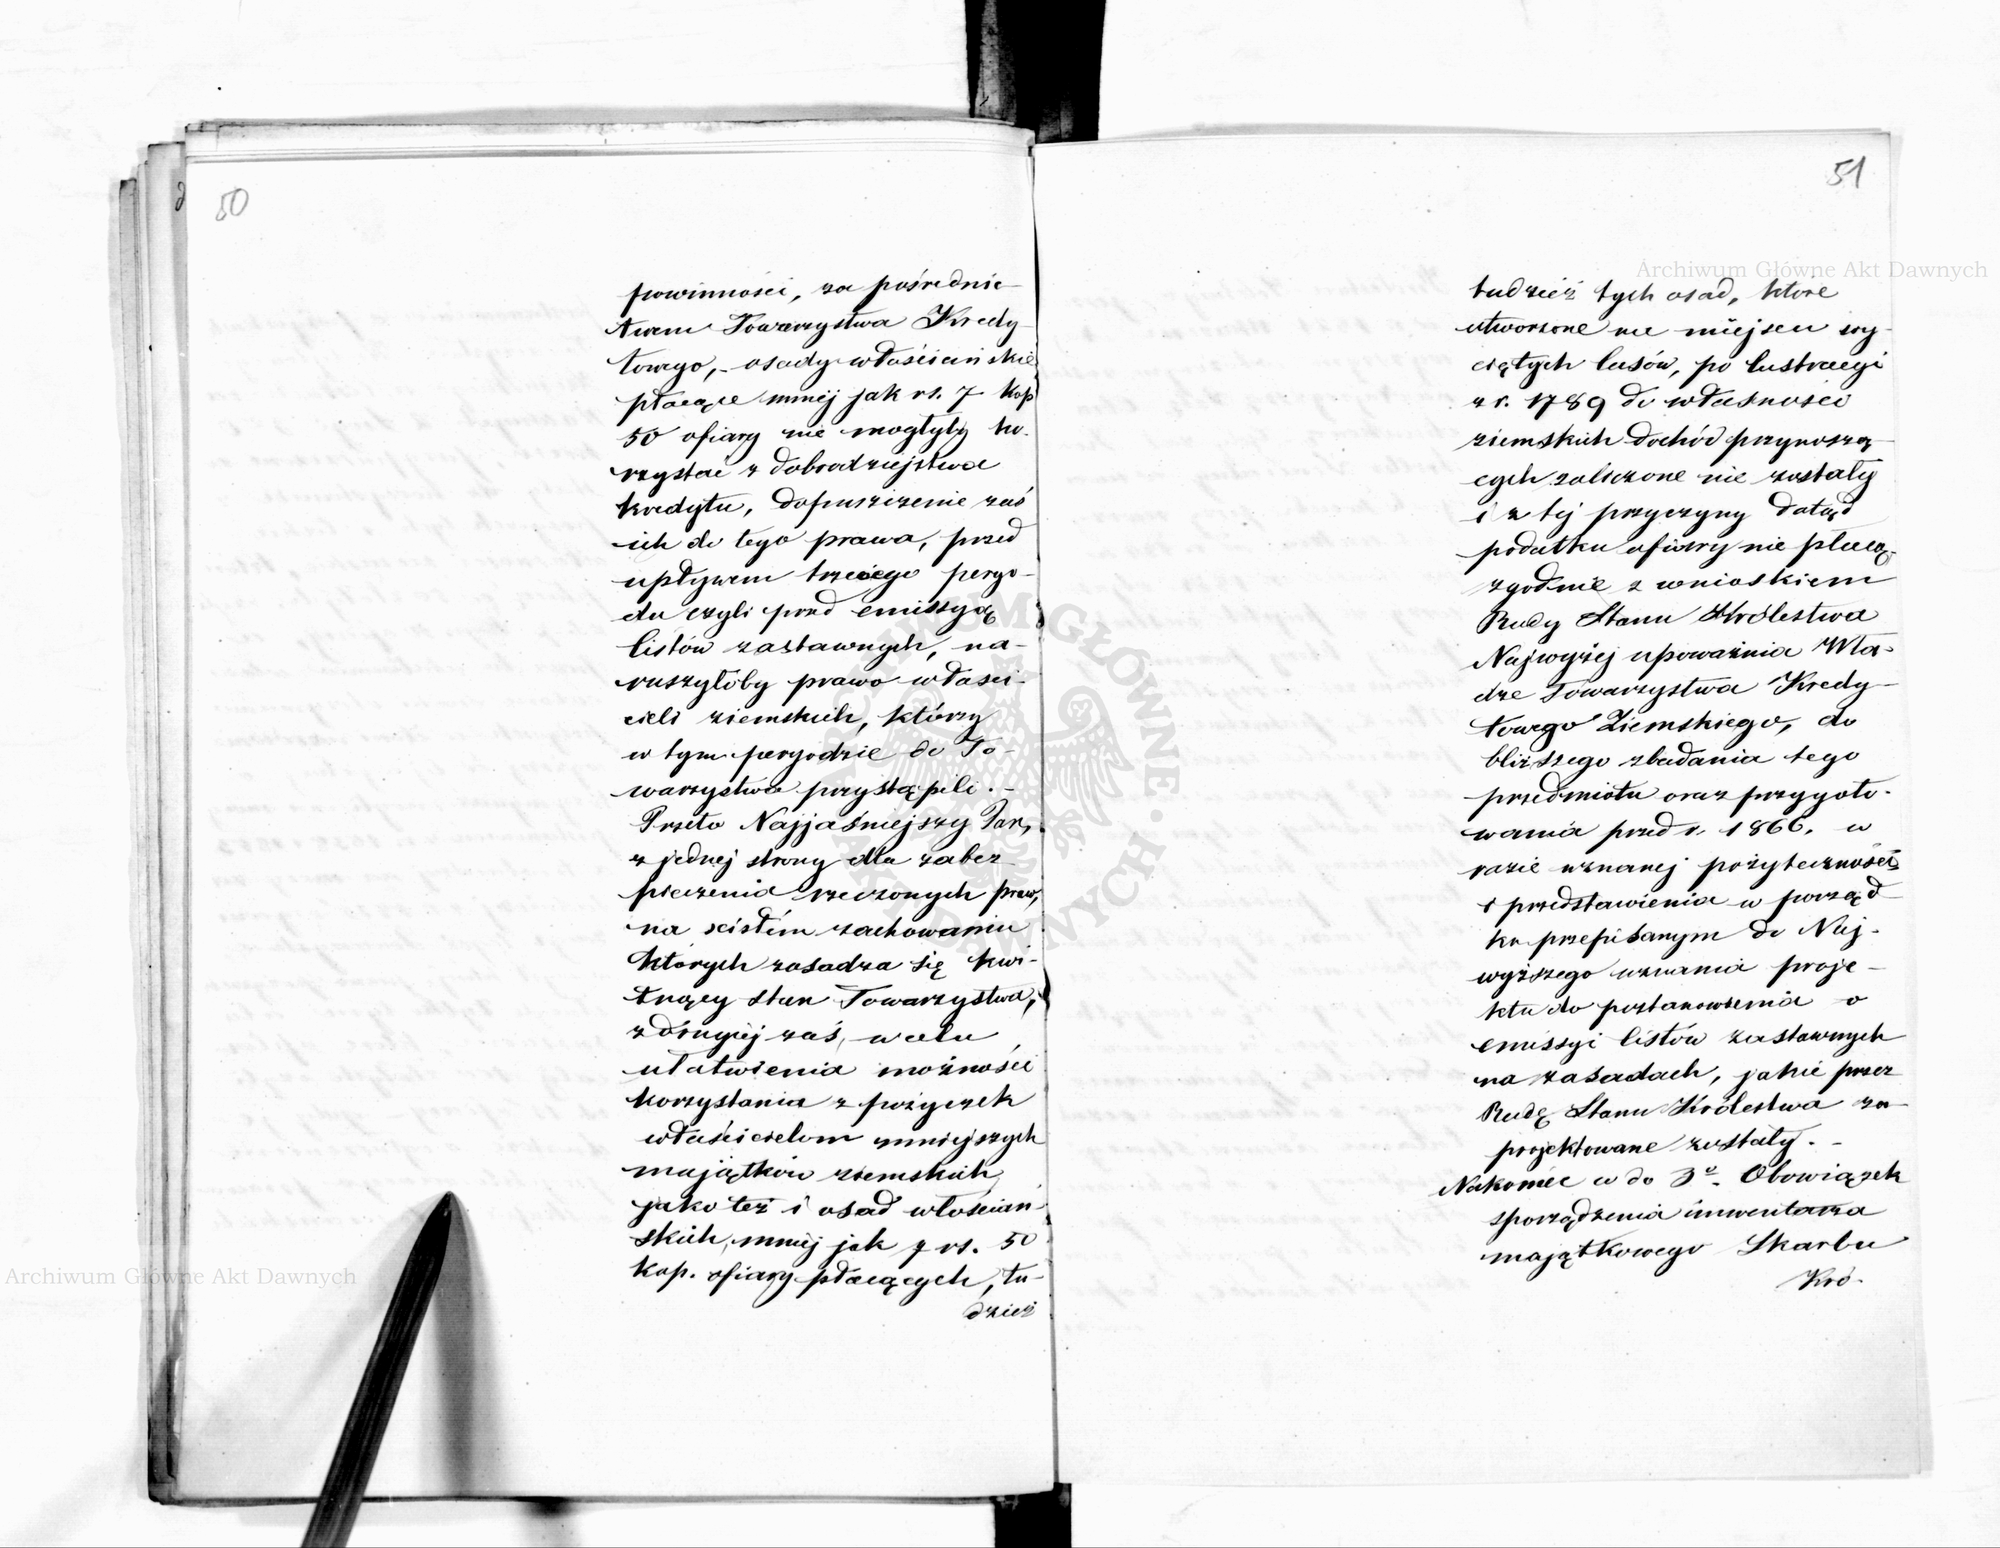 50
powinności, za pośrednic-
twem Towarzystwa Kredy-
towego,- osady włościańskie
płacące mniej jak rs. 7 kop
50 ofiary nie mogłyby ko-
rzystać z dobrodziejstwa
kredytu, dopuszczenie zaś
ich do tego prawa, przed
upływem trzeciego peryo-
du czyli przed emissyą
listów zastawnych, na-
ruszyłoby prawo właści-
cieli ziemskich, którzy
w tym peryodzie do To-
warzystwa przystąpili.-
Przeto Najjaśniejszy Pan,
z jednej strony dla zabez-
pieczenia rzeczonych praw,
na scisłém zachowaniu
których zasadza się kwi-
tnący stan Towarzystwa,
z drugiej zaś, w celu
ułatwienia możności
korzystania z pożyczek
właścicielom mniejszych
majątków ziemskich
jako też i osad włościań-
skich, mniej jak 7 rs. 50
kop. ofiary płacących, tu-
dzież
51
tudzież tych osad, które
utworzone na miejscu wy-
ciętych lasów, po lustracyi
z r. 1789 do własności
ziemskich dochód przynoszą-
cych zaliczone nie zostały
i z tej przyczyny dotąd
podatku ofiary nie płacą,
zgodnie z wnioskiem
Rady Stanu Królestwa
Najwyżej upoważnia Wła-
dze Towarzystwa Kredy-
towego Ziemskiego, do
bliższego zbadania tego
przedmiotu oraz przygoto-
wania przed r. 1866. w
razie uznanej pożyteczności
i przedstawienia w porząd-
ku przepisanym do Naj-
wyższego uznania proje-
ktu do postanowienia o
emissyi listów zastawnych
na zasadach, jakie przez
Radę Stanu Królestwa za-
projektowane zostały.-
Nakoniec co do 3º. Obowiązek
sporządzenia inwentarza
majątkowego Skarbu
Kró-
Archiwum Główne Akt Dawnych
Archiwum Główne Akt Dawnych